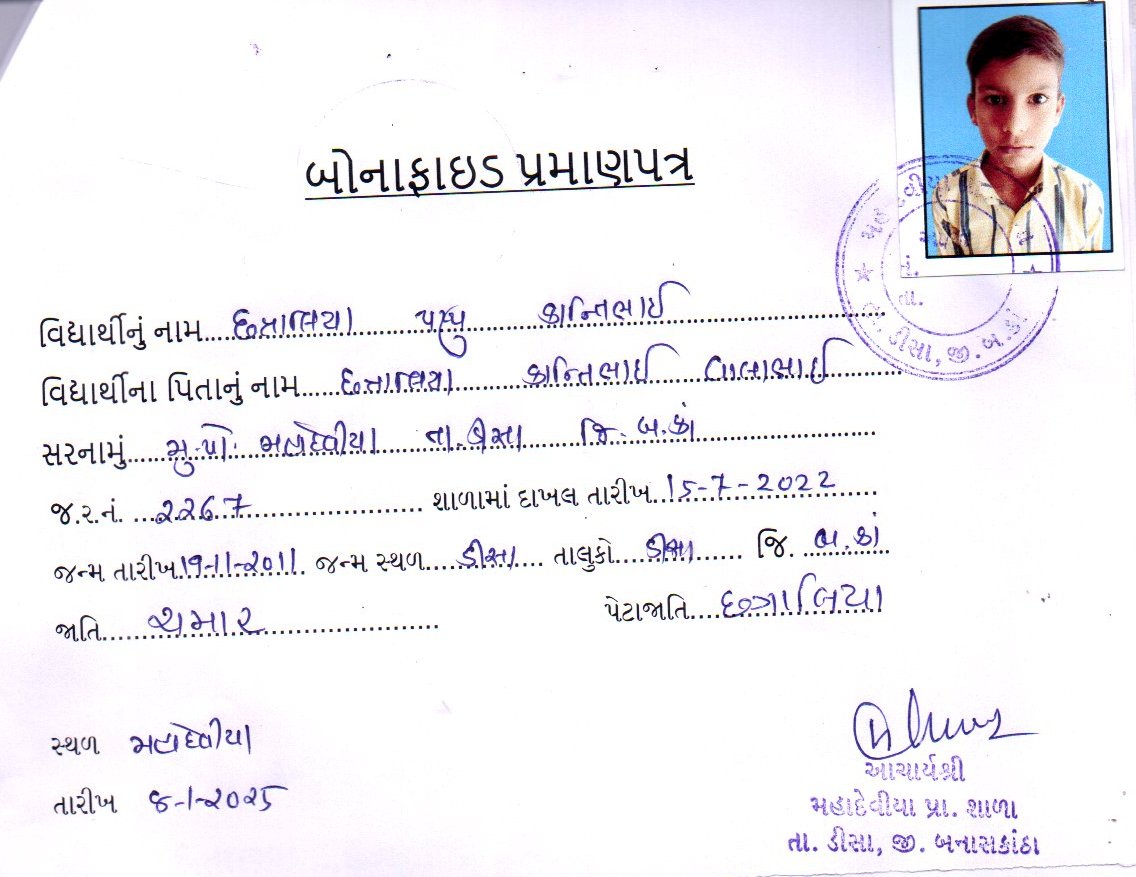 બોનાફાઇડ પ્રમાણપત્ર
વિદ્યાર્થીનું નામ.....છત્રાલિયા પપ્પુ કાન્તિભાઈ
વિદ્યાર્થીના પિતાનું નામ....છત્રાલિયા કાન્તિભાઈ વાલાભાઈ
સરનામું......મુ.પો. મહાદેવીયા તા. ડીસા જિ. બ.કાં
જ.ર.નં. ...૨૨૬7 શાળામાં દાખલ તારીખ..15-7-2022
જન્મ તારીખ.19-11-૨૦11. જન્મ સ્થળ....ડીસા.... તાલુકો....ડીસા...... જિ. બ.કાં
જાતિ......ચમાર પેટાજાતિ....છત્રાલિયા
સ્થળ મહાદેવીયા
તારીખ ૪-1-૨૦૨5
આચાર્યશ્રી
મહાદેવીયા પ્રા. શાળા
તા. ડીસા, જી. બનાસકાંઠા
તા. ડીસા, જી. બ.કાં